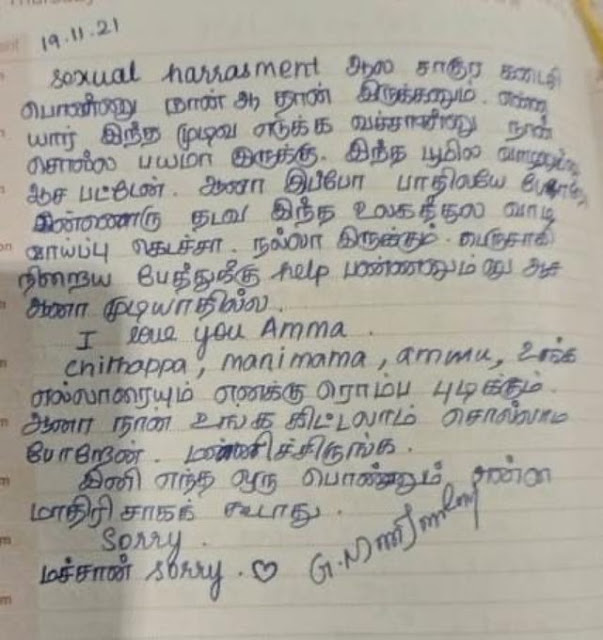 19.11.21
sexual harrasment ஆல சாகுற கடைசி
பொண்ணு நான் ஆ தான் இருக்கணும். என்ன
யார் இந்த முடிவ எடுக்க வச்சாண்ணு நான்
சொல்ல பயமா இருக்கு. இந்த பூமில
ஆச பட்டேன். ஆனா இப்போ பாதிலயே
இன்னொரு தடவ இந்த உலகத்துல வாழ
வாய்ப்பு கெடச்சா. நல்லா இருக்கும். பெருசாகி
நிறைய பேத்துக்கு help பண்ணனும் னு ஆச
ஆனா முடியாதில்ல.
I love you Amma.
chithappa, manimama, ammu, உங்க
எல்லாரையும் எனக்கு ரொம்ப புடிக்கும்.
ஆனா நான் உங்க கிட்டலாம் சொல்லாம
போறேன். மன்னிச்சிருங்க.
இனி எந்த ஒரு பொண்ணும் என்ன
மாதிரி சாகக் கூடாது.
Sorry.
மச்சான் sorry. ♡